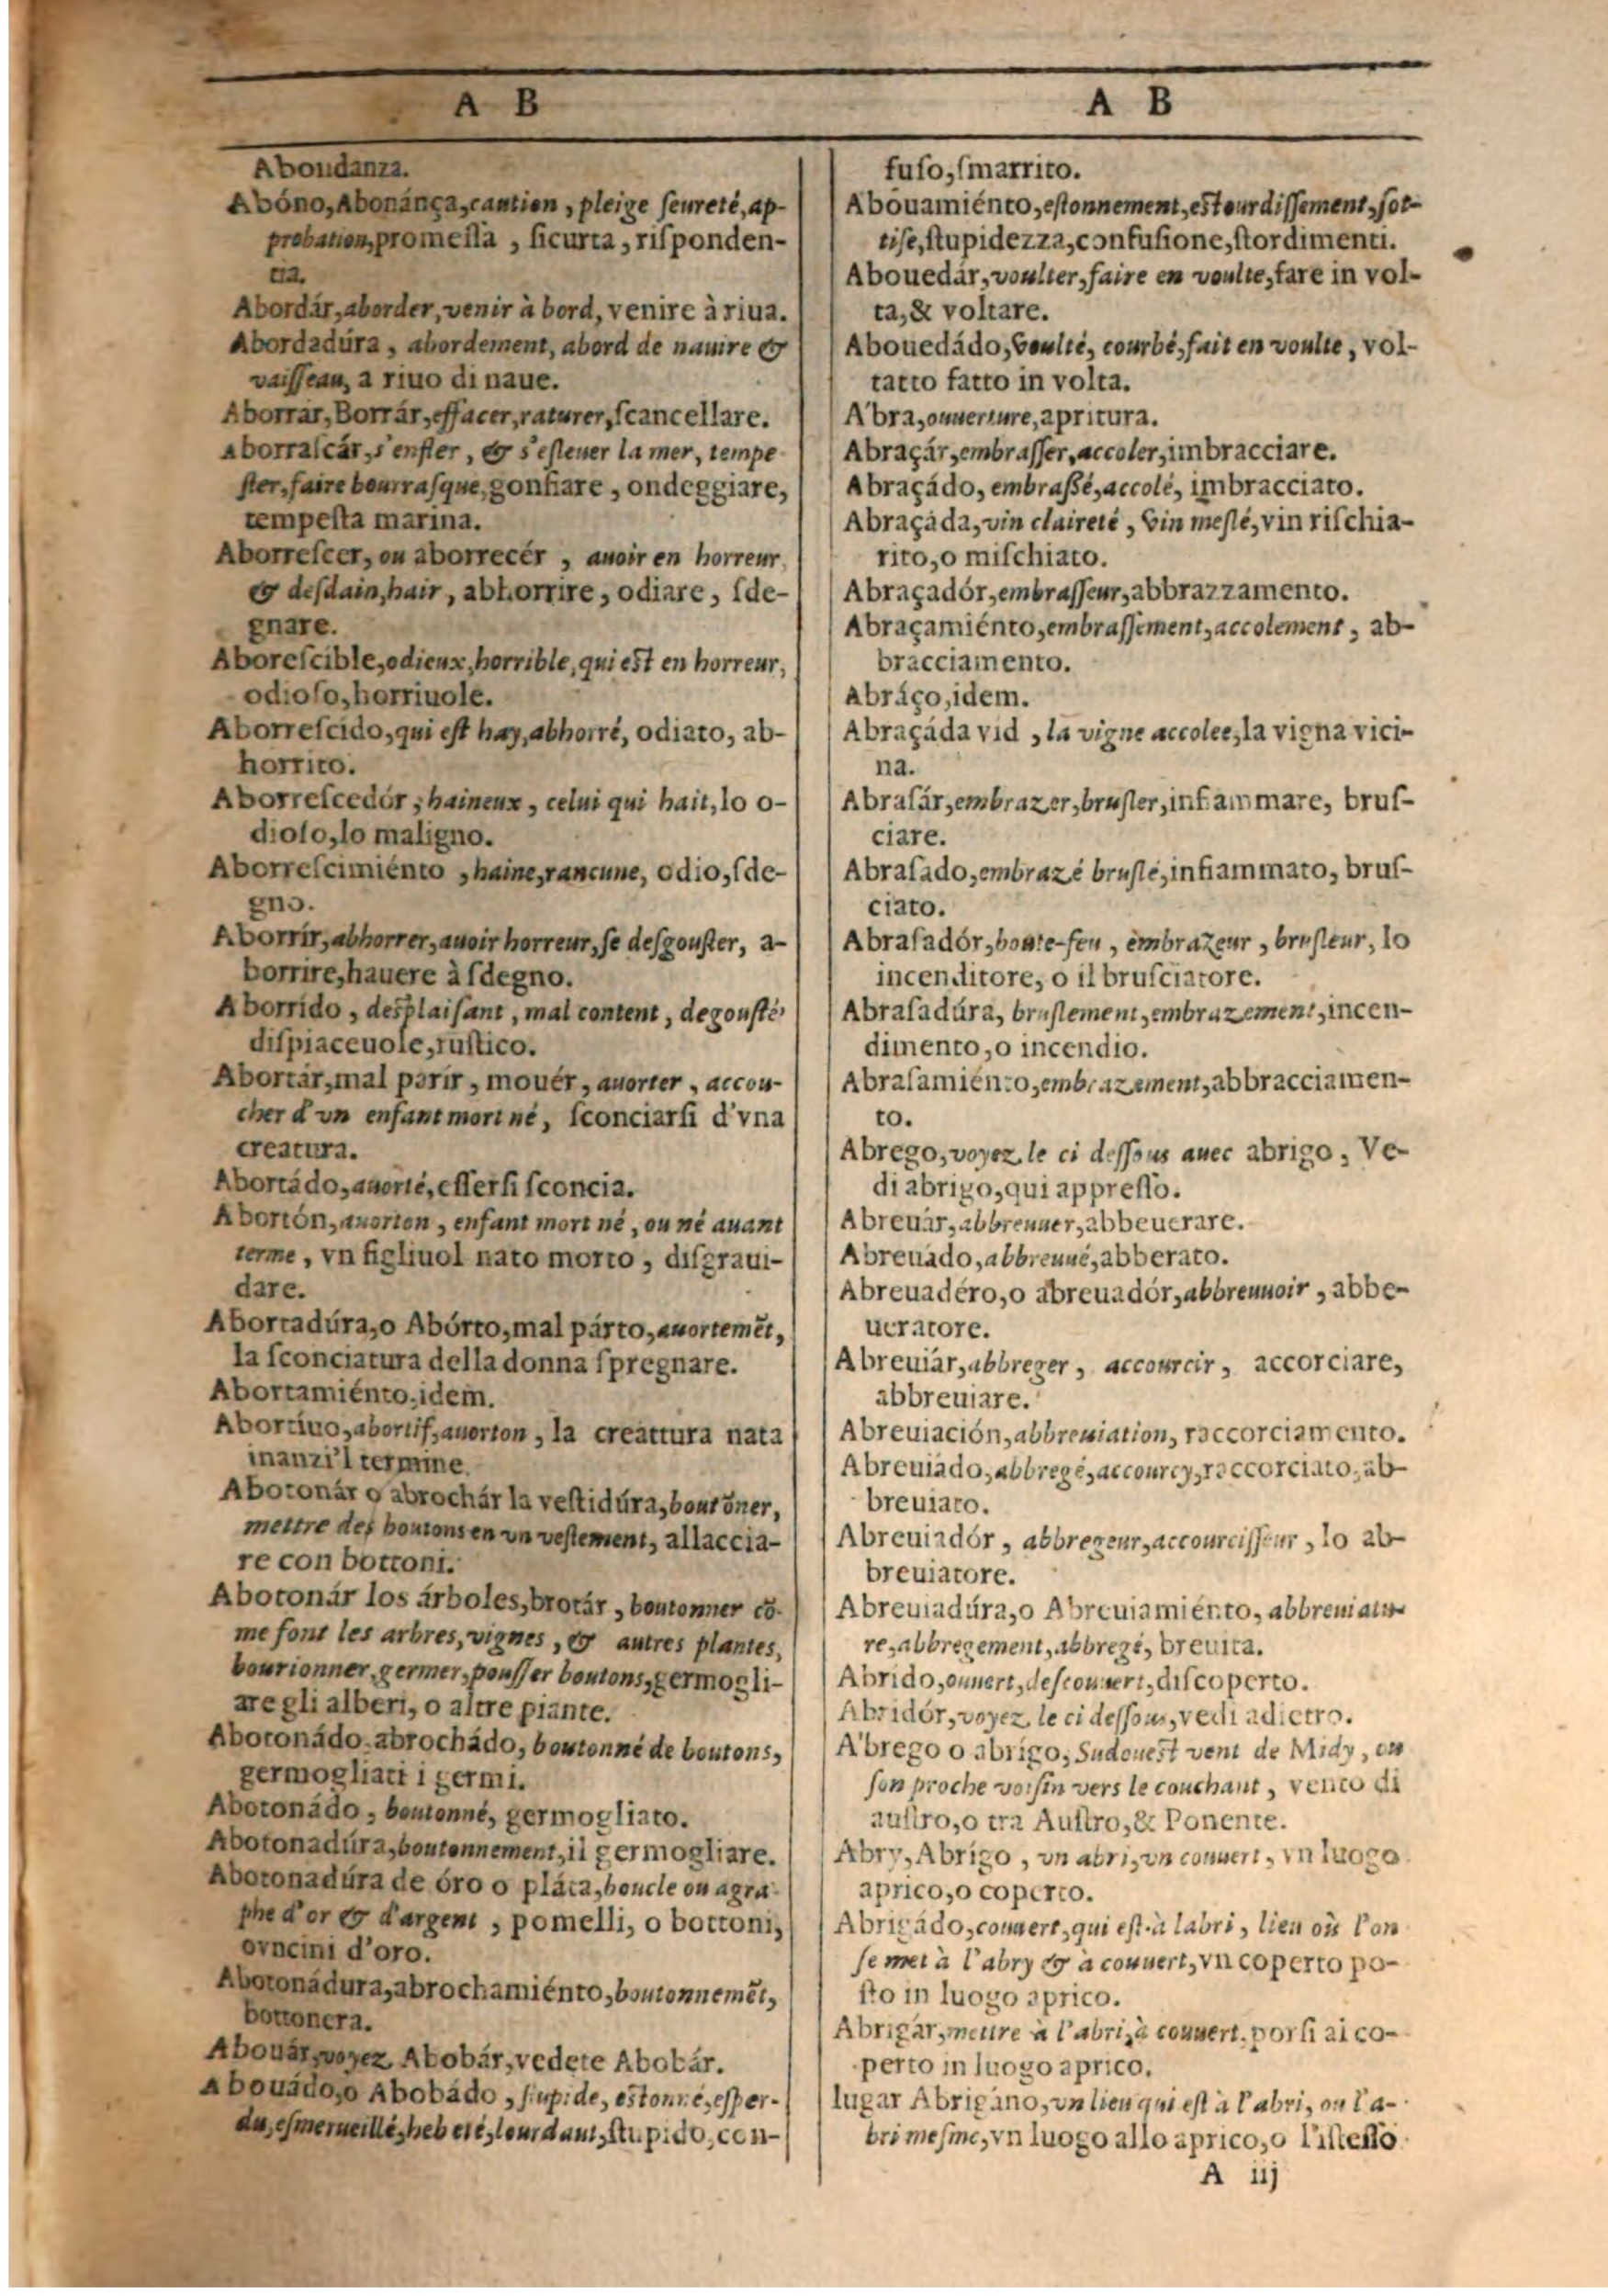 A B
Aboudanza.
Abóno, Abonánça, caution, pleige ſeureté, ap-
probation, promeſſa, ſicurta, riſponden-
tia.
Abordár, aborder, venir à bord, venire à riua.
Abordadúra, abordement, abord de nauire &
vaiſſeau, a riuo di naue.
Aborrar, Borrár, effacer, raturer, ſcancellare.
Aborraſcár, s'enfler, & s'eſleuer la mer, tempe
ſter, faire bourraſque, gonfiare, ondeggiare,
tempeſta marina.
Aborreſcer, ou aborrecér, auoir en horreur,
& deſdain, hair, abhorrire, odiare, ſde-
gnare.
Aboreſcible, odieux, horrible, qui eſt en horreur,
odioſo, horriuole.
Aborreſcido, qui eſt hay, abhorré, odiato, ab-
horrito.
Aborreſcedór, haineux, celui qui hait, lo o-
dioſo, lo maligno.
Aborreſcimiénto, haine, rancune, odio, ſde-
gno.
Aborrír, abhorrer, auoir horreur, ſe deſgouſter, a-
borrire, hauere à ſdegno.
Aborrído, deſplaiſant, mal content, degouſté,
diſpiaceuole, ruſtico.
Abortár, mal parír, mouér, auorter, accou-
cher d'vn enfant mort né, ſconciarſi d'vna
creatura.
Abortádo, auorté, eſſerſi ſconcia.
Abortón, auorton, enfant mort né, ou né auant
terme, vn figliuol nato morto, diſgraui-
dare.
Abortadúra, o Abórto, mal párto, auortemẽt,
la ſconciatura della donna ſpregnare.
Abortamiénto, idem.
Abortíuo, abortif, auorton, la creattura nata
inanzi'l termine.
Abotonár o abrochár la veſtidúra, boutõner,
mettre des boutons en vn veſtement, allaccia-
re con bottoni.
Abotonár los árboles, brotár, boutonner cõ-
me font les arbres, vignes, & autres plantes,
bourionner, germer, pouſſer boutons, germogli-
are gli alberi, o altre piante.
Abotonádo, abrochádo, boutonné de boutons,
germogliati i germi.
Abotonádo, boutonné, germogliato.
Abotonadúra, boutonnement, il germogliare.
Abotonadúra de óro o pláta, boucle ou agra
phe d'or & d'argent, pomelli, o bottoni,
ovncini d'oro.
Abotonádura, abrochamiénto, boutonnemẽt,
bottonera.
Abouár, voyez Abobár, vedete Abobár.
Abouádo, o Abobádo, ſtupide, eſtonné, eſper-
du, eſmerueillé, hebeté, lourdaut, ſtupido, con-
A B
fuſo, ſmarrito.
Abouamiénto, eſtonnement, eſtourdiſſement, ſot-
tiſe, ſtupidezza, confuſione, ſtordimenti.
Abouedár, voulter, faire en voulte, fare in vol-
ta, & voltare.
Abouedádo, voulté, courbé, fait en voulte, vol-
tatto fatto in volta.
A'bra, ouuerture, apritura.
Abraçár, embraſſer, accoler, imbracciare.
Abraçádo, embraſſé, accolé, imbracciato.
Abraçáda, vin claireté, vin meſlé, vin riſchia-
rito, o miſchiato.
Abraçadór, embraſſeur, abbrazzamento.
Abraçamiénto, embraſſement, accolement, ab-
bracciamento.
Abráço, idem.
Abraçáda vid, la vigne accolee, la vigna vici-
na.
Abraſár, embrazer, bruſler, infiammare, bruſ-
ciare.
Abraſado, embrazé bruſlé, infiammato, bruſ-
ciato.
Abraſadór, boute-feu, embrazeur, bruſleur, lo
incenditore, o il bruſciatore.
Abraſadúra, bruſlement, embrazement, incen-
dimento, o incendio.
Abraſamiénto, embrazement, abbracciamen-
to.
Abrego, voyez le ci deſſous auec abrigo, Ve-
di abrigo, qui appreſſo.
Abreuár, abbreuuer, abbeuerare.
Abreuádo, abbreuué, abberato.
Abreuadéro, o abreuadór, abbreuuoir, abbe-
ueratore.
Abreuiár, abbreger, accourcir, accorciare,
abbreuiare.
Abreuiación, abbreuiation, raccorciamento.
Abreuiádo, abbregé, accourcy, raccorciato, ab-
breuiato.
Abreuiadór, abbregeur, accourciſſeur, lo ab-
breuiatore.
Abreuiadúra, o Abreuiamiénto, abbreuiatu-
re, abbregement, abbregé, breuita.
Abrído, ouuert, deſcouuert, diſcoperto.
Abridór, voyez le ci deſſous, vedi adietro.
A'brego o abrígo, Sudoueſt vent de Midy, ou
ſon proche voiſin vers le couchant, vento di
auſtro, o tra Auſtro, & Ponente.
Abry, Abrígo, vn abri, vn couuert, vn luogo
aprico, o coperto.
Abrigádo, couuert, qui eſt à labri, lieu où l'on
ſe met à l'abry & à couuert, vn coperto po-
ſto in luogo aprico.
Abrigár, mettre à l'abri, à couuert, porſi ai co-
perto in luogo aprico.
lugar Abrigáno, vn lieu qui eſt à l'abri, ou l'a-
bri meſme, vn luogo allo aprico, o l'iſteſſo
A iij